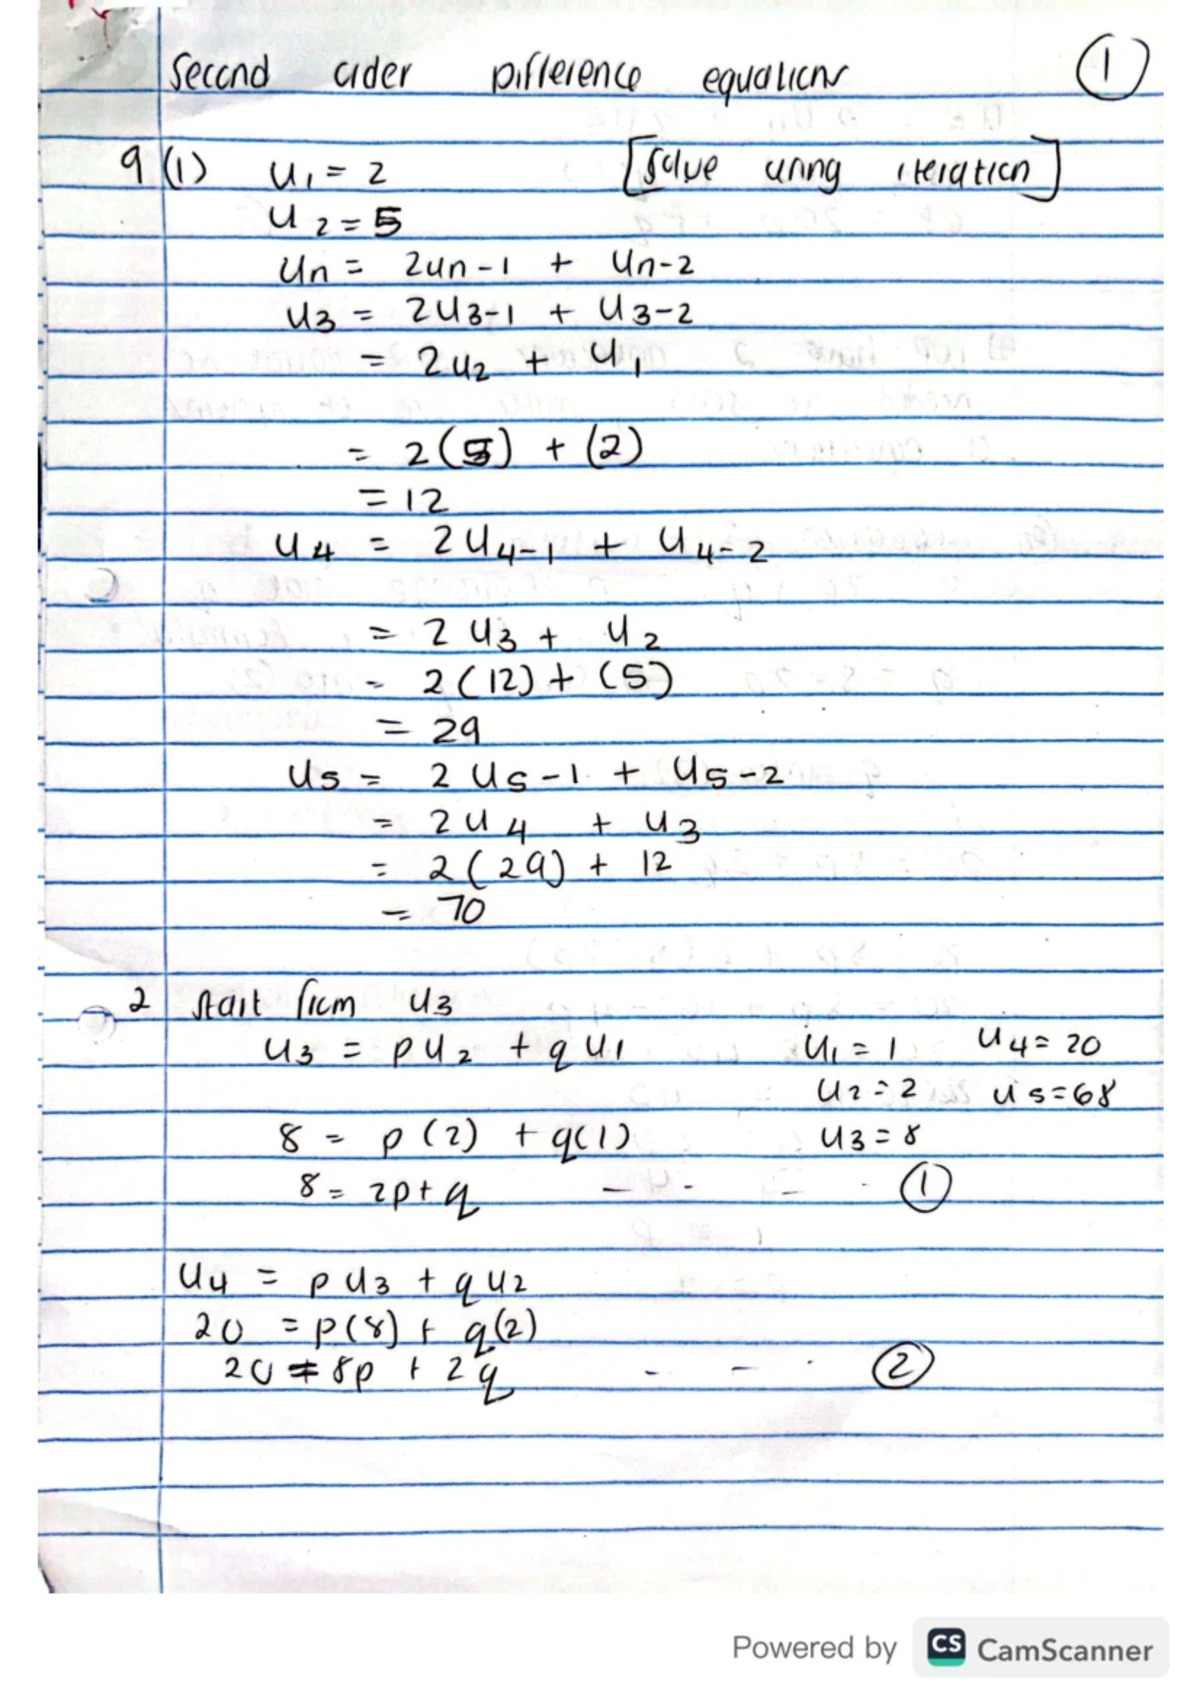 Second order Difference equations
1
9 (1) U1 = 2 [Solve using iteration]
U2 = 5
Un = 2un-1 + Un-2
U3 = 2U3-1 + U3-2
= 2U2 + U1
= 2(5) + (2)
= 12
U4 = 2U4-1 + U4-2
= 2U3 + U2
= 2(12) + (5)
= 29
U5 = 2U5-1 + U5-2
= 2U4 + U3
= 2(29) + 12
= 70
2 start from U3
U3 = pU2 + qU1 U1 = 1 U4 = 20
U2 = 2 U5 = 68
8 = p(2) + q(1) U3 = 8
8 = 2p + q - - - - 1
U4 = pU3 + qU2
20 = p(8) + q(2)
20 = 8p + 2q - - - 2
Powered by CS CamScanner